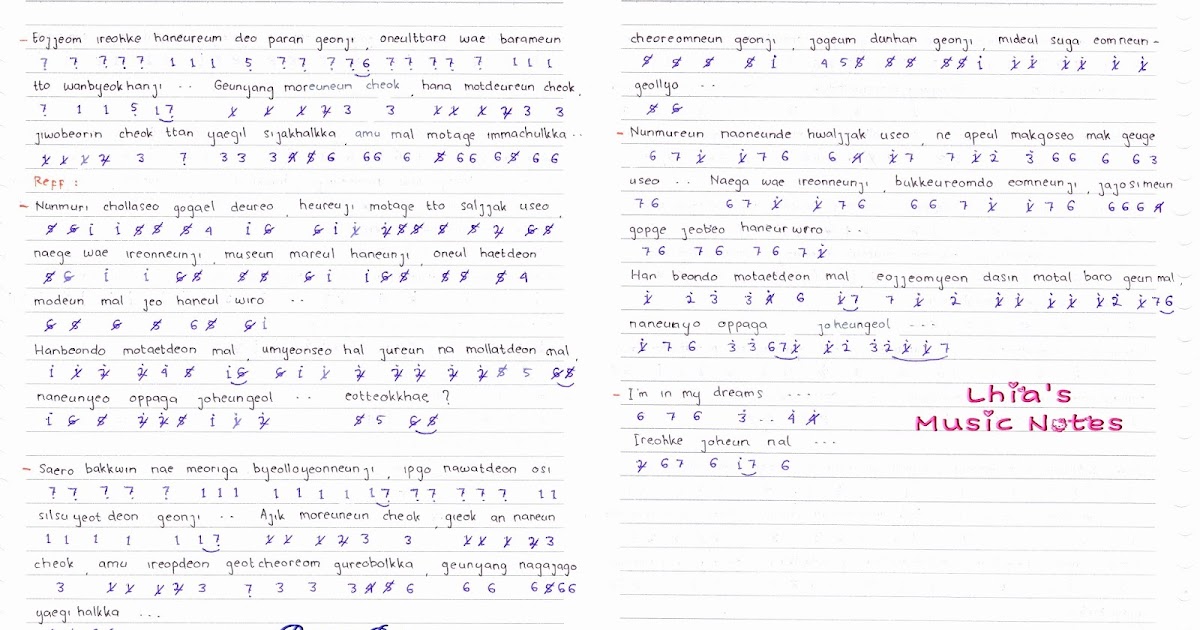 – Eojjeom ireohke haneureum deo paran geonji, oneulttara wae barameun
7 7 7 7 7 1 1 1 5 7 7 7 7 6 7 7 7 7 7 1 1 1
tto wanbyeokhanji ..  Geunyang moreuneun cheok, hana motdeureun cheok,
7 1 1 5 1 7 1 1 1 2 3 3 1 1 1 2 3 3
jiwobeorin cheok ttan yaegil sijakhalkka, amu mal motage immachulkka ..
1 1 1 2 3 7 3 3 3 4 5 6 6 6 6 5 6 6 6 5 6 6
Reff :
– Nunmuri chollaseo gogael deureo, heureuji motage tto saljjak useo,
5 6 1 1 5 5 5 4 1 6 6 1 1 2 5 5 5 5 2 6 5
naege wae ireonneunji, museun mareul haneunji, oneul haetdeon
5 6 1 1 6 5 5 5 6 1 1 6 5 5 5 5 4
modeun mal jeo haneul wiro ..
6 5 6 5 6 5 6 1
Hanbeondo motaetdeon mal, umyeonseo hal jureun na mollatdeon mal,
1 1 2 2 4 5 1 6 6 1 1 2 2 2 2 2 5 5 6 5
naneunyeo oppaga joheungeol .. eotteokkhae ?
1 6 5 2 2 5 1 1 2 5 5 6 5
– Saero bakkwin nae meoriga byeolloyeonneunji, ipgo nawatdeon osi
7 7 7 7 7 1 1 1 1 1 1 1 1 7 7 7 7 7 7 1 1
silsu yeot deon geonji ..  Ajik moreuneun cheok, gieok an naneun
1 1 1 1 1 1 7 1 1 1 2 3 3 1 1 1 2 3
cheok, amu ireopdeon geotcheoreom gureobolkka, geunyang nagajago
3 1 1 1 2 3 7 3 3 3 4 5 6 6 6 6 5 6 6
yaegi halkka ...
cheoreomneun geonji, jogeum dunhan geonji, mideul suga eomneun –
5 5 5 5 1 4 5 5 5 5 5 5 1 1 1 1 1 1 1
geollyo ..
5 6
– Nunmureun naoneunde hwaljjak useo, ne apeul makgoseo mak geuge
6 7 1 1 7 6 6 4 1 7 7 1 2 3 6 6 6 6 3
useo ..  Naega wae ireonneunji, bukkeureomdo eomneunji, jajosimeun
7 6 6 7 1 1 7 6 6 6 7 1 1 7 6 6 6 6 4
gopge jeobeo haneurwiro ..
7 6 7 6 7 6 7 1
Han beondo motaetdeon mal, eojjeomyeon dasin motal baro geun mal,
1 2 3 3 4 6 1 7 7 1 2 1 1 1 1 1 2 1 7 6
naneunyo oppaga joheungeol ...
1 7 6 3 3 6 7 1 1 2 3 2 1 1 7
– I'm in my dreams ...
6 7 6 3 .. 4 4
Ireohke joheun nal ...
2 6 7 6 1 7 6
Lhia's
Music Notes